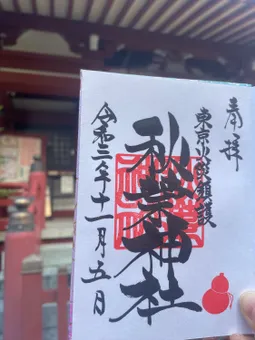 奉拝
東京火災難護
秋葉神社
令和三年十一月五日